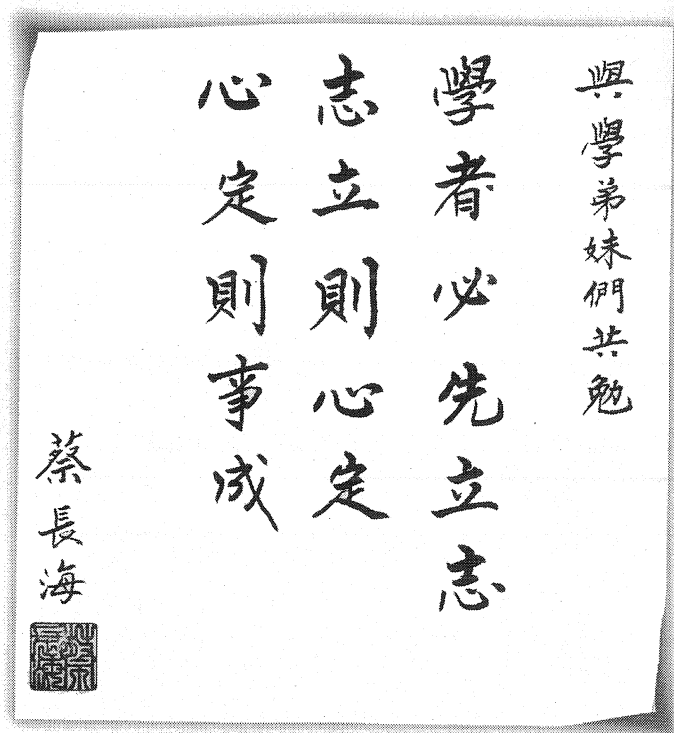 與學弟妹們共勉
學者必先立志
志立則心定
心定則事成
蔡長海